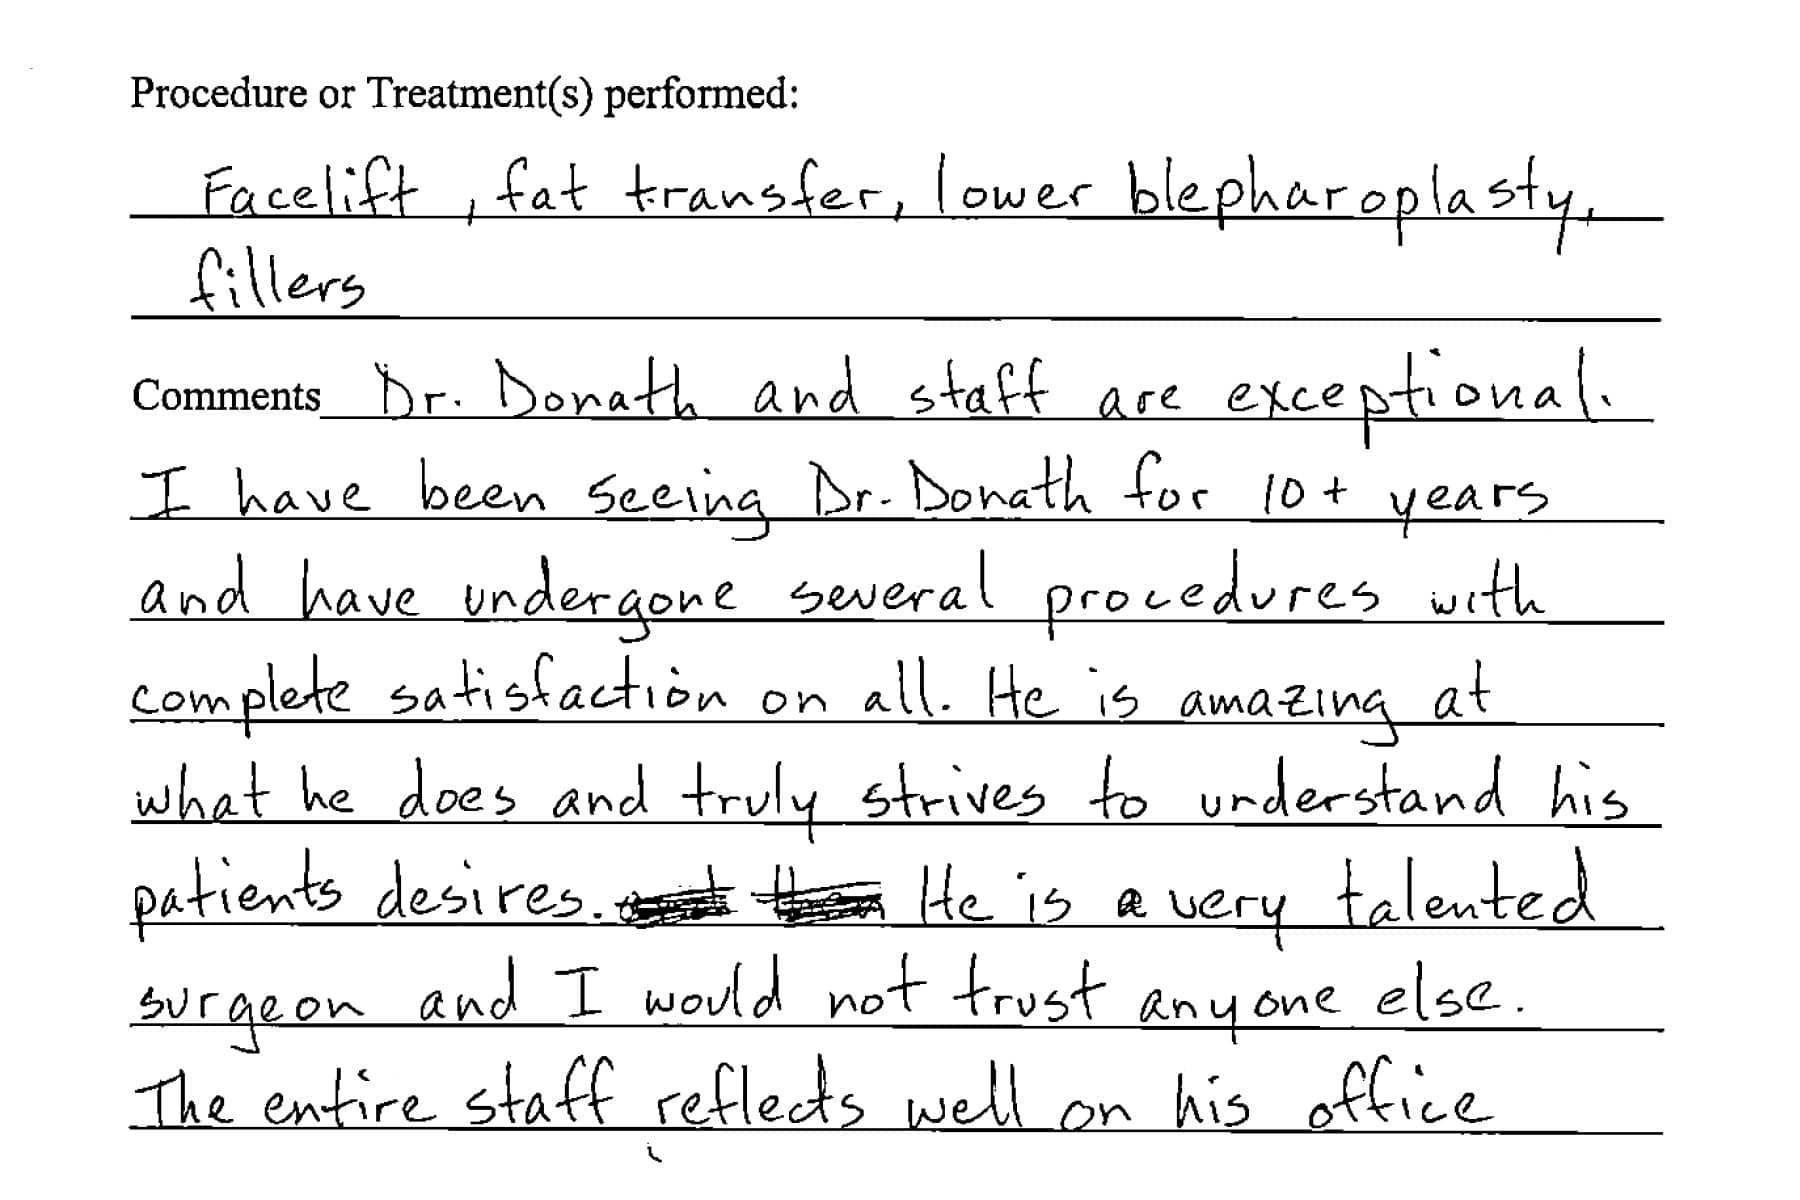 Procedure or Treatment(s) performed:
Facelift, fat transfer, lower blepharoplasty,
fillers
Comments Dr. Donath and staff are exceptional.
I have been seeing Dr. Donath for 10+ years
and have undergone several procedures with
complete satisfaction on all. He is amazing at
what he does and truly strives to understand his
patients desires. He is a very talented
surgeon and I would not trust anyone else.
The entire staff reflects well on his office